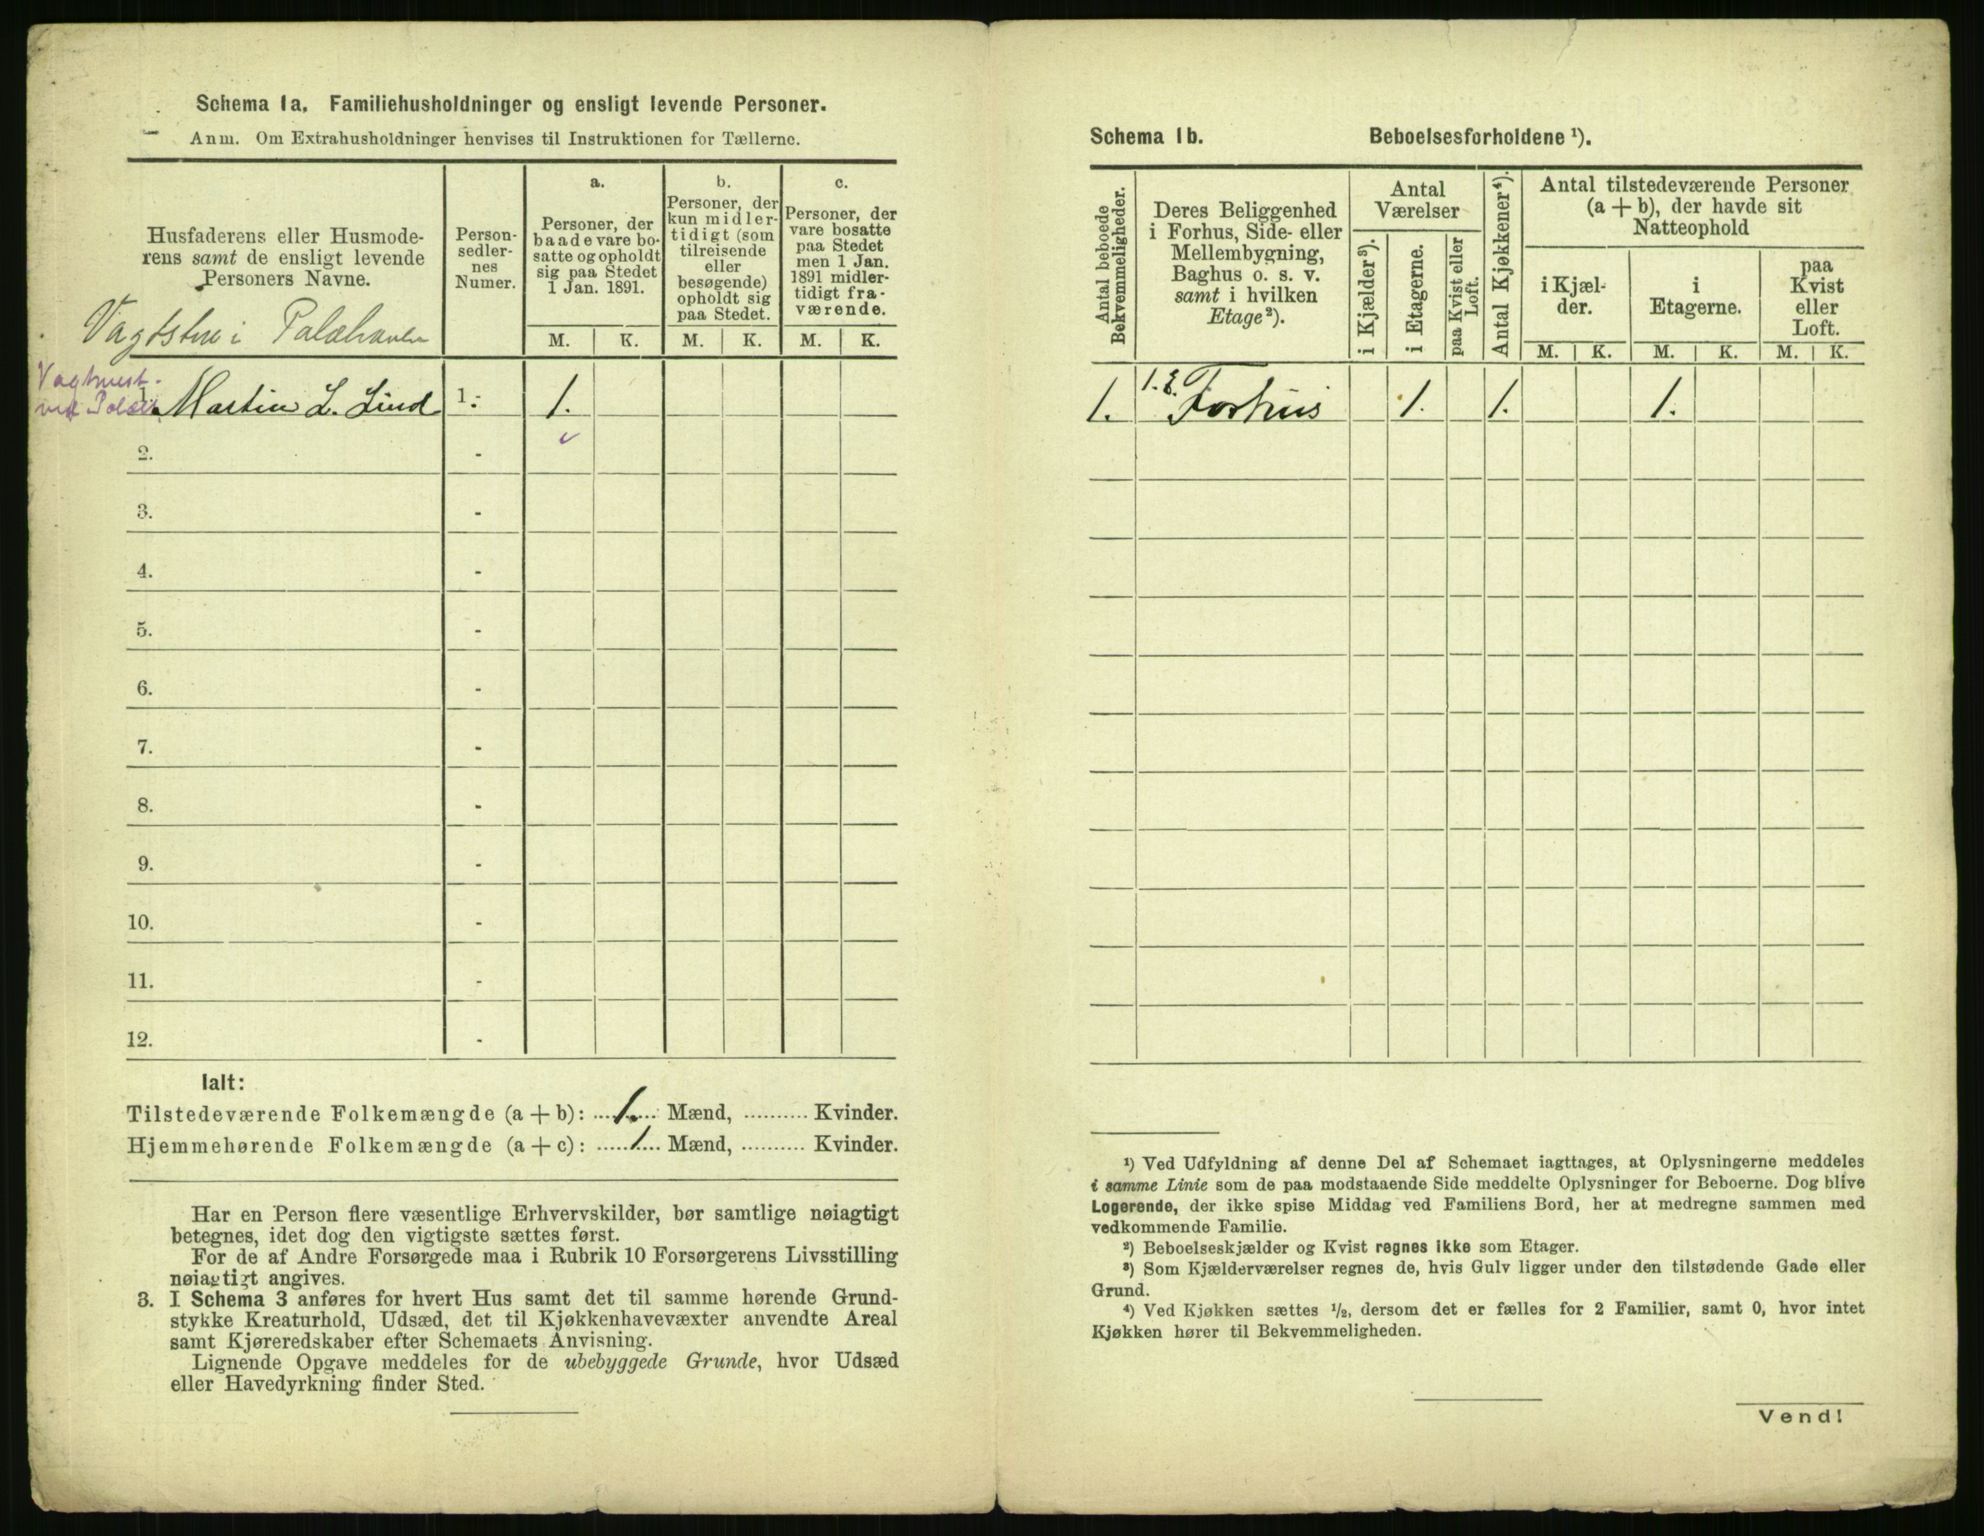 Schema 1a. Familiehusholdninger og ensligt levende Personer.
Anm. Om Extrahusholdninger henvises til Instruktionen for Tællerne.
Husfaderens eller Husmode-
rens samt de ensligt levende
Personers Navne.
Person-
sedler-
nes
Numer.
a.
Personer, der
baade vare bo-
satte og opholdt
sig paa Stedet
1 Jan. 1891.
b.
Personer, der
kun midler-
tidigt (som
tilreisende
eller
besøgende)
opholdt sig
paa Stedet.
c.
Personer, der
vare bosatte
paa Stedet
men 1 Jan.
1891 midler-
tidigt fra-
værende.
M. K. M. K. M. K.
i Palæhaven
ved
Martin L. Lind 1.- 1.
2. -
3. -
4. -
5. -
6. -
7. -
8. -
9. -
10. -
11. -
12. -
Ialt:
Tilstedeværende Folkemængde (a + b): ...1.... Mænd, .......... Kvinder.
Hjemmehørende Folkemængde (a + c): .....1... Mænd, .......... Kvinder.
Har en Person flere væsentlige Erhvervskilder, bør samtlige nøiagtigt
betegnes, idet dog den vigtigste sættes først.
For de af Andre Forsørgede maa i Rubrik 10 Forsørgerens Livsstilling
nøiagtigt angives.
3. I Schema 3 anføres for hvert Hus samt det til samme hørende Grund-
stykke Kreaturhold, Udsæd, det til Kjøkkenhavevæxter anvendte Areal
samt Kjøreredskaber efter Schemaets Anvisning.
Lignende Opgave meddeles for de ubebyggede Grunde, hvor Udsæd
eller Havedyrkning finder Sted.
Schema 1b. Beboelsesforholdene ¹).
Antal beboede
Bekvemmeligheder.
Deres Beliggenhed
i Forhus, Side- eller
Mellembygning,
Baghus o. s. v.
samt i hvilken
Etage²).
Antal
Værelser
i Kjælder³).
i Etagerne.
paa Kvist eller
Loft.
Antal Kjøkkener⁴).
Antal tilstedeværende Personer
(a + b), der havde sit
Natteophold
i Kjæl-
der.
i
Etagerne.
paa
Kvist
eller
Loft.
M. K. M. K. M. K.
1. 1. E. Forhus 1. 1. 1.
¹) Ved Udfyldning af denne Del af Schemaet iagttages, at Oplysningerne meddeles
i samme Linie som de paa modstaaende Side meddelte Oplysninger for Beboerne. Dog blive
Logerende, der ikke spise Middag ved Familiens Bord, her at medregne sammen med
vedkommende Familie.
²) Beboelseskjælder og Kvist regnes ikke som Etager.
³) Som Kjælderværelser regnes de, hvis Gulv ligger under den tilstødende Gade eller
Grund.
⁴) Ved Kjøkken sættes ½, dersom det er fælles for 2 Familier, samt 0, hvor intet
Kjøkken hører til Bekvemmeligheden.
Vend!